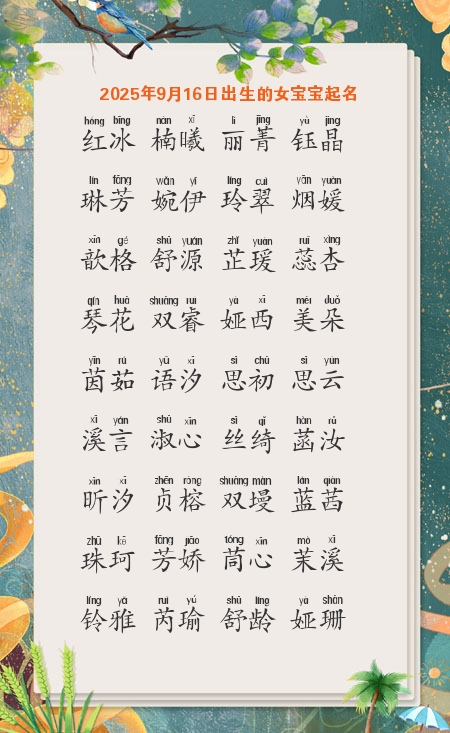 2025年9月16日出生的女宝宝起名
hóng bīng nán xī lì jīng yù jīng
红冰 楠曦 丽菁 钰晶
lín fāng wǎn yī líng cuì yān yuàn
琳芳 婉伊 玲翠 烟媛
xīn gé shū yuán zhǐ yuàn ruǐ xìng
歆格 舒源 芷瑗 蕊杏
qín huā shuāng ruì yà xī měi duǒ
琴花 双睿 娅西 美朵
yīn rú yǔ xī sī chū sī yún
茵茹 语汐 思初 思云
xī yán shū xīn sī qǐ hàn rǔ
溪言 淑心 丝绮 菡汝
xīn xī zhēn róng shuāng màn lán qiàn
昕汐 贞榕 双墁 蓝茜
zhū kē fāng jiāo tóng xīn mò xī
珠珂 芳娇 茼心 茉溪
líng yǎ ruì yú shū líng yà shān
铃雅 芮瑜 舒龄 娅珊